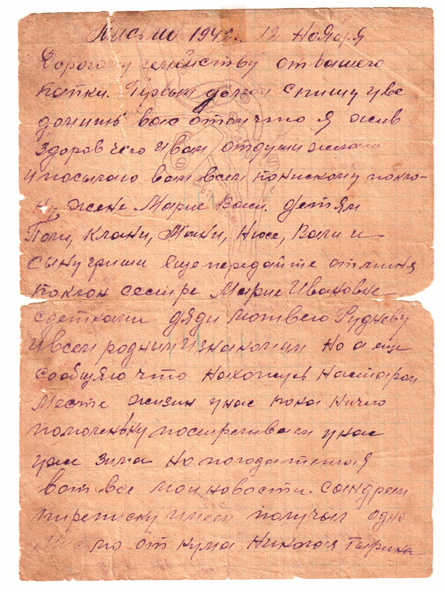 Письмо 1942. 12 Ноября
Дорогому семейству от вашего
папки. Первым делом спишу уве
домить вас о том что я жив
здоров чего и вам от души желаю
и посылаю вам всем по нискому покло
ну жене Марие Васи. детям
Поли, Клани, Мани, Нюсе, Вали и
сыну гриши еще передайте от меня
поклон сестре Марие Ивановне
с детками дяди Матвею Рудневу
и всем родным и знакомым но а еще
сообщяю что нахожусь на старом
месте жизнь у нас пока ничего
помоленьку постреливаем у нас
уже зима но погода теплая
вот все мои новости. с андреем
переписку имею получил одно
от кума Николая